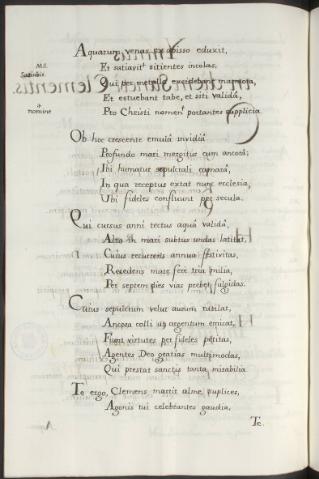 Aquarum venas ex abisso eduxit,
Et satiavit sitientes incolas,
Qui per metalla excidebant marmora,
Et estuebant tabe, et siti valida,
Pro Christi nomen portantes supplicia.
M.S.
nomine
Ob hec crescente emula invidia
Profundo mari mergitur cum ancora;
Ibi humatur sepulcrali camara,
In qua receptus extat nunc ecclesia,
Ubi fideles confluunt per secula.
Qui cursus anni tectus aqua valida,
Alto in mari subtus undas latitat,
Cuius recurrens annua festivitas,
Recedens mare fere tria milia,
Per septem dies vias prebet fulgidas.
Cuius sepulcrum velut aurum rutilat,
Ancora colli ut argentum emicat,
Fiunt virtutes per fideles petitas,
Agentes Deo gratias multimodas,
Qui prestat sanctis tanta mirabilia.
Te ergo, Clemens martir alme, suplices,
Agonis tui celebrantes gaudia,
Te